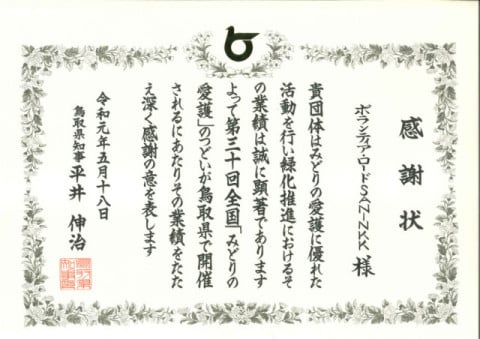 感謝状
ボランティア・ロードSAN-INKK 様
貴団体はみどりの愛護に優れた
活動を行い緑化推進におけるそ
の業績は誠に顕著であります
よって第三十回全国「みどりの
愛護」のつどいが鳥取県で開催
されるにあたりその業績をたた
え深く感謝の意を表します
令和元年五月十八日
鳥取県知事 平井伸治